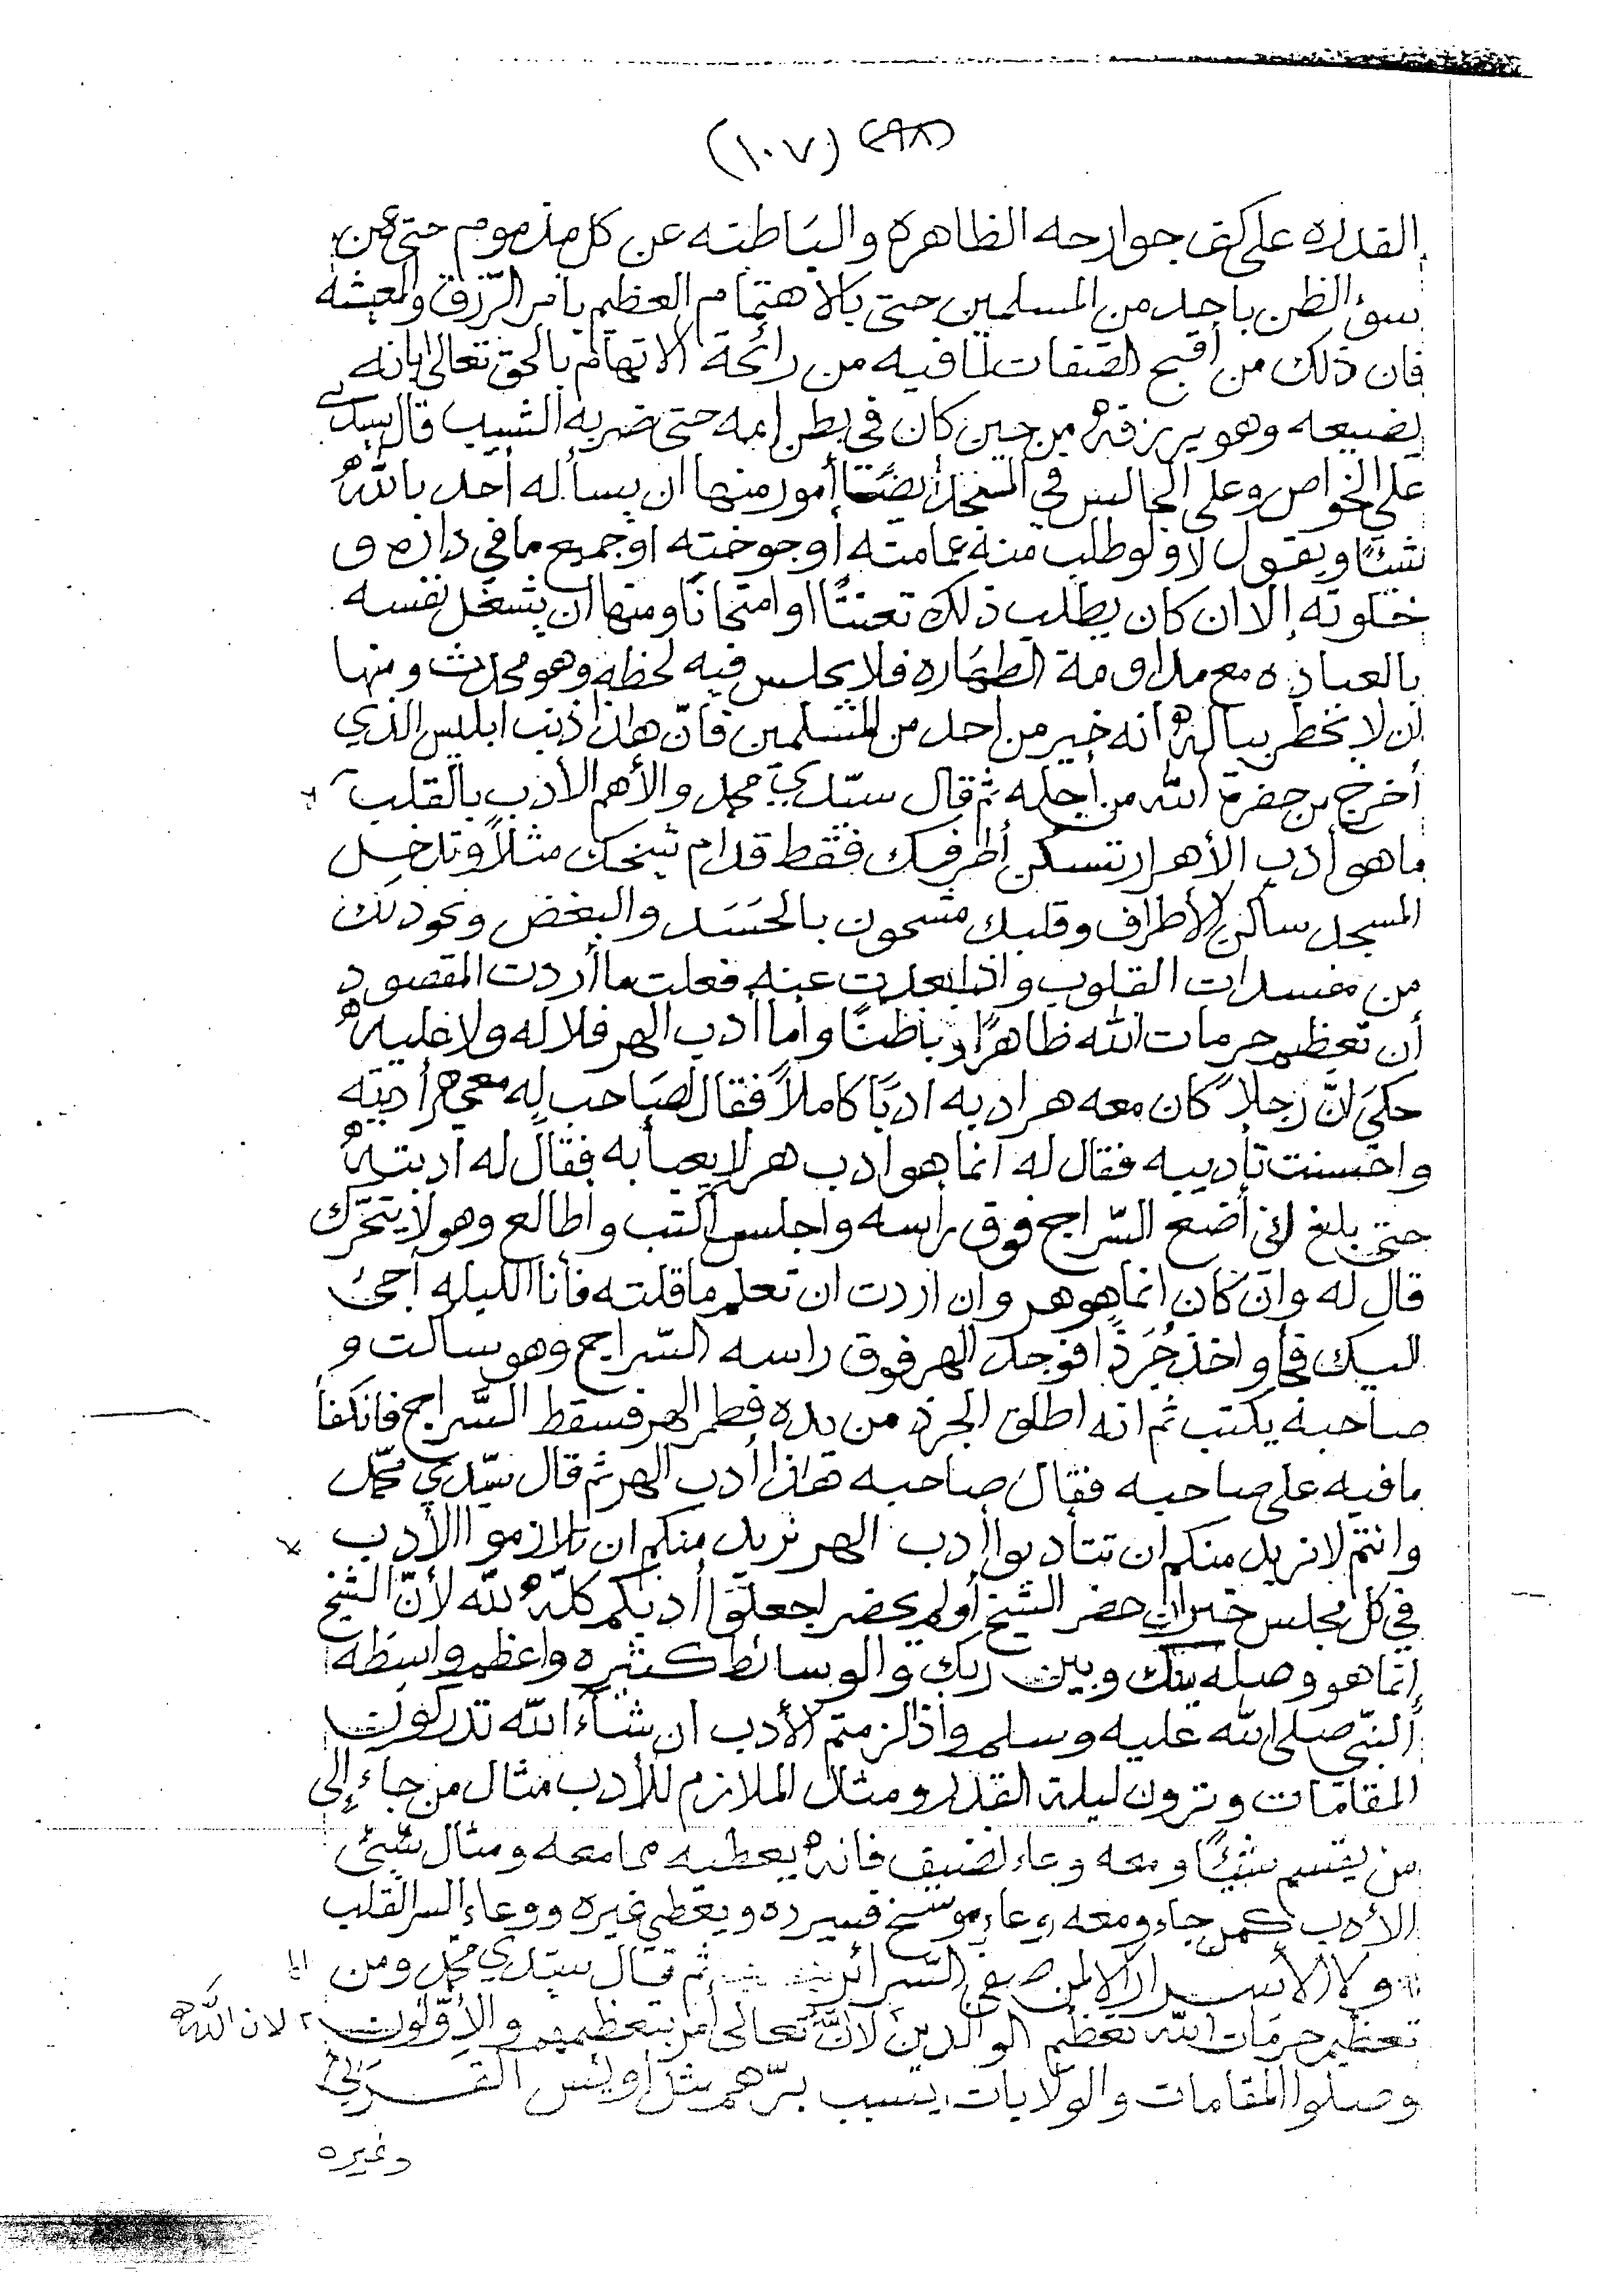 (٢٩٨) (١٠٧)
القدره على كف جوارحه الظاهرة والباطنه عن كل مذموم حتى عن
سوء الظن باحد من المسلمين حتى بالاهتمام العظيم بامر الرّزق والمعيشه
فان ذلك من أقبح الصفات لما فيه من رائحة الاتهام بالحق تعالى بانه
يضيعه وهو يرزقه من حين كان في بطن امه حتى ضربه الشيب قال سيدي
علي الخواص وعلى الجالس في المسجد أيضًا أمور منها ان يسأله أحد بالله
شئًا ويقول لا ولو طلب منه عمامته أو جوخته او جميع ما في داره و
خلوته إلا ان كان يطلب ذلك تعنتًا او امتحانًا ومنها ان يشغل نفسه
بالعباده مع مداومة الطهاره فلا يجلس فيه لحظه وهو محدث ومنها
ان لا يخطر بباله انه خير من احد من المسلمين فانّ هذا ذنب ابليس الذي
أخرج من حضرة الله من أجله ثم قال سيّدي محمد والأهم الأدب بالقلب
ما هو أدب الأهرار تسكن أطرافك فقط قدام شيخك مثلاً وتدخل
المسجد ساكن الأطراف وقلبك مشحون بالحَسَد والبغض ونحو ذلك
من مفسدات القلوب واذا بعدت عنه فعلت ما أردت المقصود
أن تعظيم حرمات الله ظاهرًا وباطنًا واما أدب الهر فلا له ولا عليه
حكيَ انّ رجلاً كان معه هر ادبه ادبًا كاملاً فقال لصَاحب له معي هر أدبته
واحسنت تأديبه فقال له انما هو ادب هر لا يعبأ به فقال له ادبته
حتى بلغ اني أضع السّراج فوق راسه واجلس أكتب واطالع وهو لا يتحرّك
قال له وان كان انما هو هر وان اردت ان تعلم ما قلته فأنا الليله أجئ
اليك فجا واخذ جُرَذًا فوجد الهر فوق راسه السّراج وهو ساكت و
صاحبه يكتب ثم انه اطلق الجرذ من يده فطمر الهر فسقط السَّراج فانكفأ
ما فيه على صاحبه فقال صاحبه هذا أدب الهر ثم قال سيّدي محمّد
وانتم لا نريد منكم ان تتأدبوا أدب الهر نريد منكم ان تلازموا الأدب
في كل مجلس خير ان حضر الشيخ أو لم يحضر اجعلوا أدبكم كلّه لله لأنّ الشيخ
إنما هو وصله بينك وبين ربك والوسائط كثيره واعظم واسطه
النبّي صلى الله عليه وسلم واذا لزمتم الأدب ان شاء الله تدركون
المقامات وترون ليلة القدر ومثال الملازم للأدب مثال من جاء إلى
من يقسم شيئًا ومعه وعاء لضيف فانه يعطيه مامعه ومثال سيئ
الأدب كمن جاء ومعه وعاء موسخ فيرده ويعطي غيره ووعاء السر القلب
ولا الأسرار الا لمن صفى السّرائر ثم قال سيّدي محمّد ومن
تعظيم حرمات الله تعظيم الوالدين لانّه تعالى أمر بتعظيمهم والأوّلون
لان الله
وصلوا المقامات والولايات بسبب برّهم مثل أويس القرني
وغيره